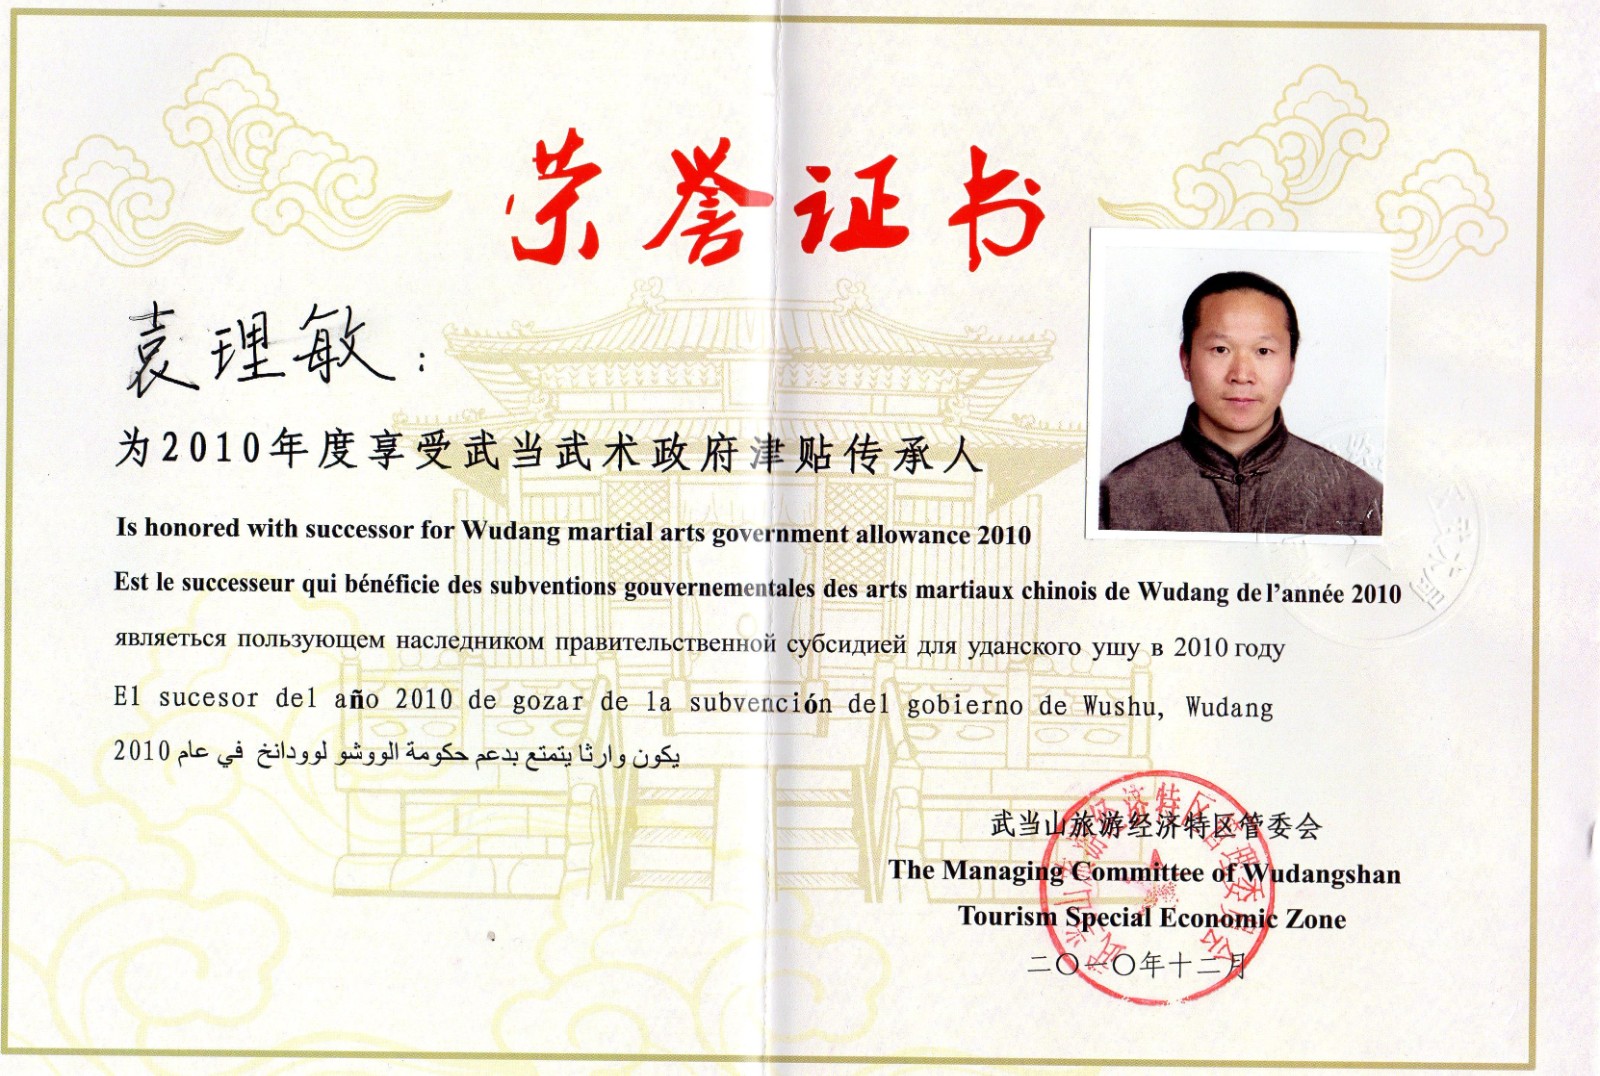 荣誉证书
袁理敏：
为2010年度享受武当武术政府津贴传承人
Is honored with successor for Wudang martial arts government allowance 2010
Est le successeur qui bénéficie des subventions gouvernementales des arts martiaux chinois de Wudang de l’année 2010
являеться пользующем наследником правительственной субсидией для уданского ушу в 2010 году
El sucesor del año 2010 de gozar de la subvención del gobierno de Wushu, Wudang
يكون وارثا يتمتع بدعم حكومة الووشو لوودانخ في عام 2010
武当山旅游经济特区管委会
The Managing Committee of Wudangshan
Tourism Special Economic Zone
二〇一〇年十二月
武当山旅游经济特区管理委员会